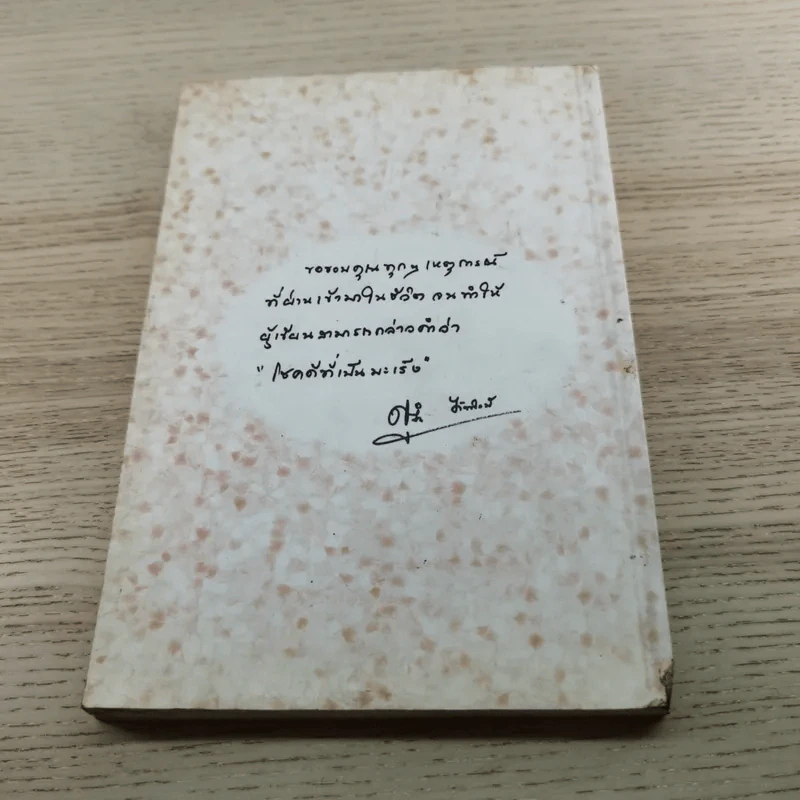 ขอขอบคุณทุกๆ เหตุการณ์
ที่ผ่านเข้ามาในชีวิต จนทำให้
ผู้เขียนสามารถกล่าวคำว่า
"โชคดีที่เป็นมะเร็ง"